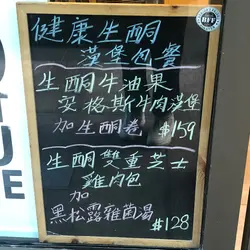 健康生酮
漢堡包餐
生酮牛油果
安格斯牛肉漢堡
加生酮卷 $159
生酮雙重芝士
雞肉包
加
黑松露雜菌湯
$128
BFF